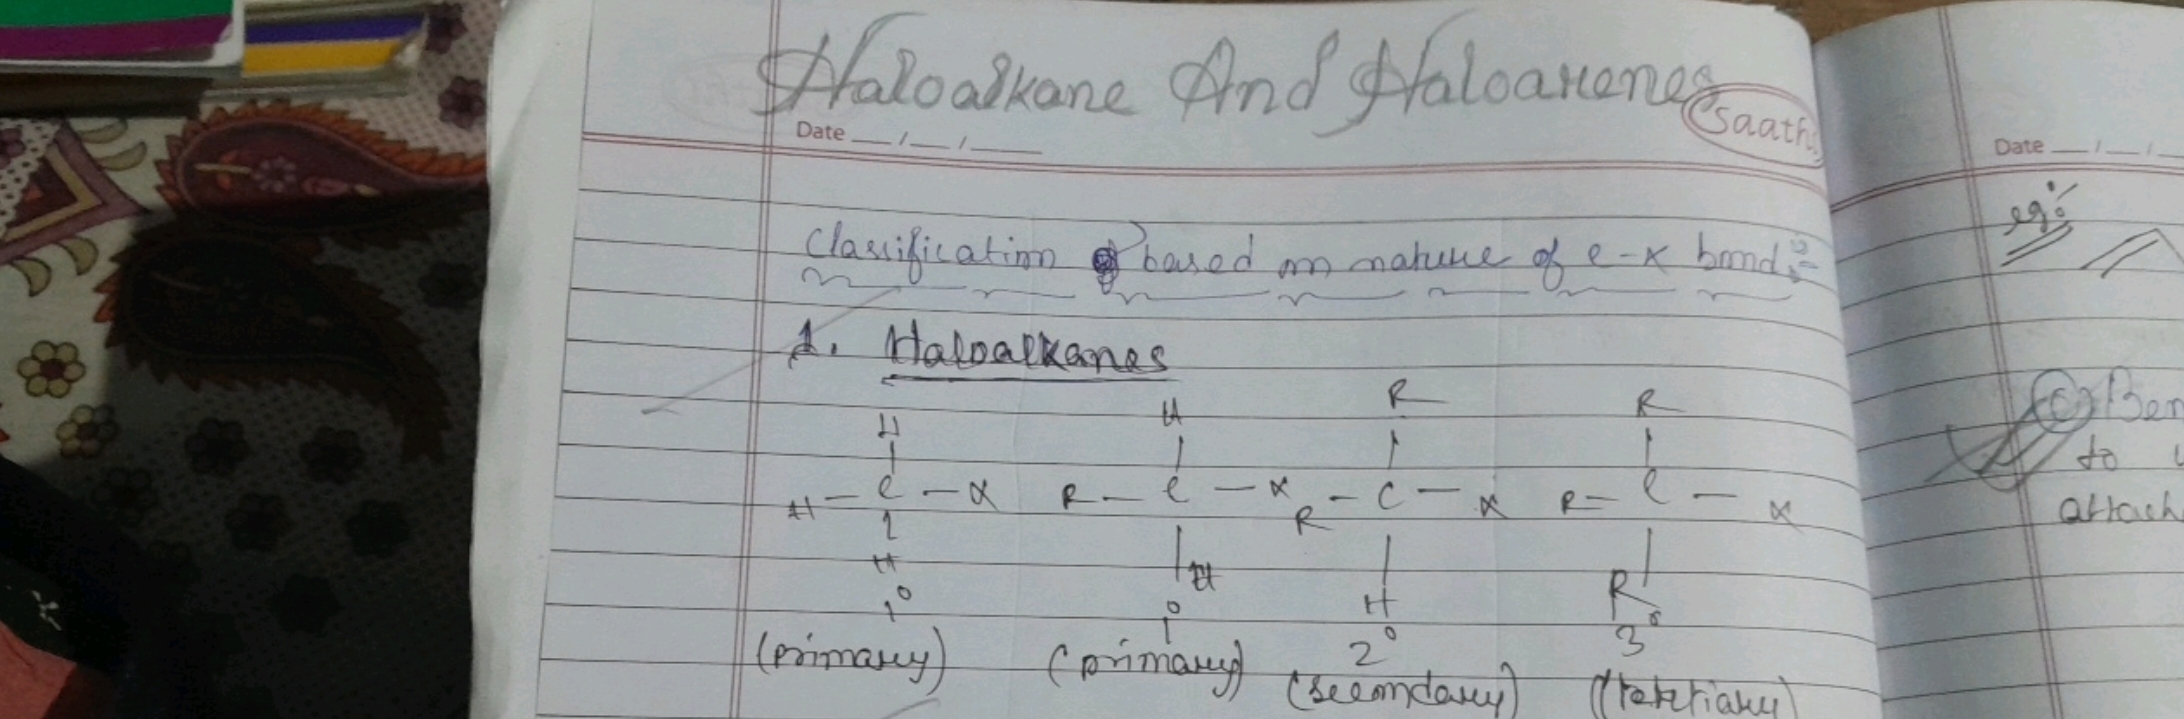 Haloalkane And Haloarenes
Saathi
Date __/__/____
Date __/__/__
Classification based on nature of C-X bond:-
eg:
1. Haloalkanes
H H R R
H - C - X R - C - X R - C - X R - C - X
H H H R
1° 1° 2° 3°
(primary) (primary) (secondary) (tertiary)
(c) Ben
to
attach